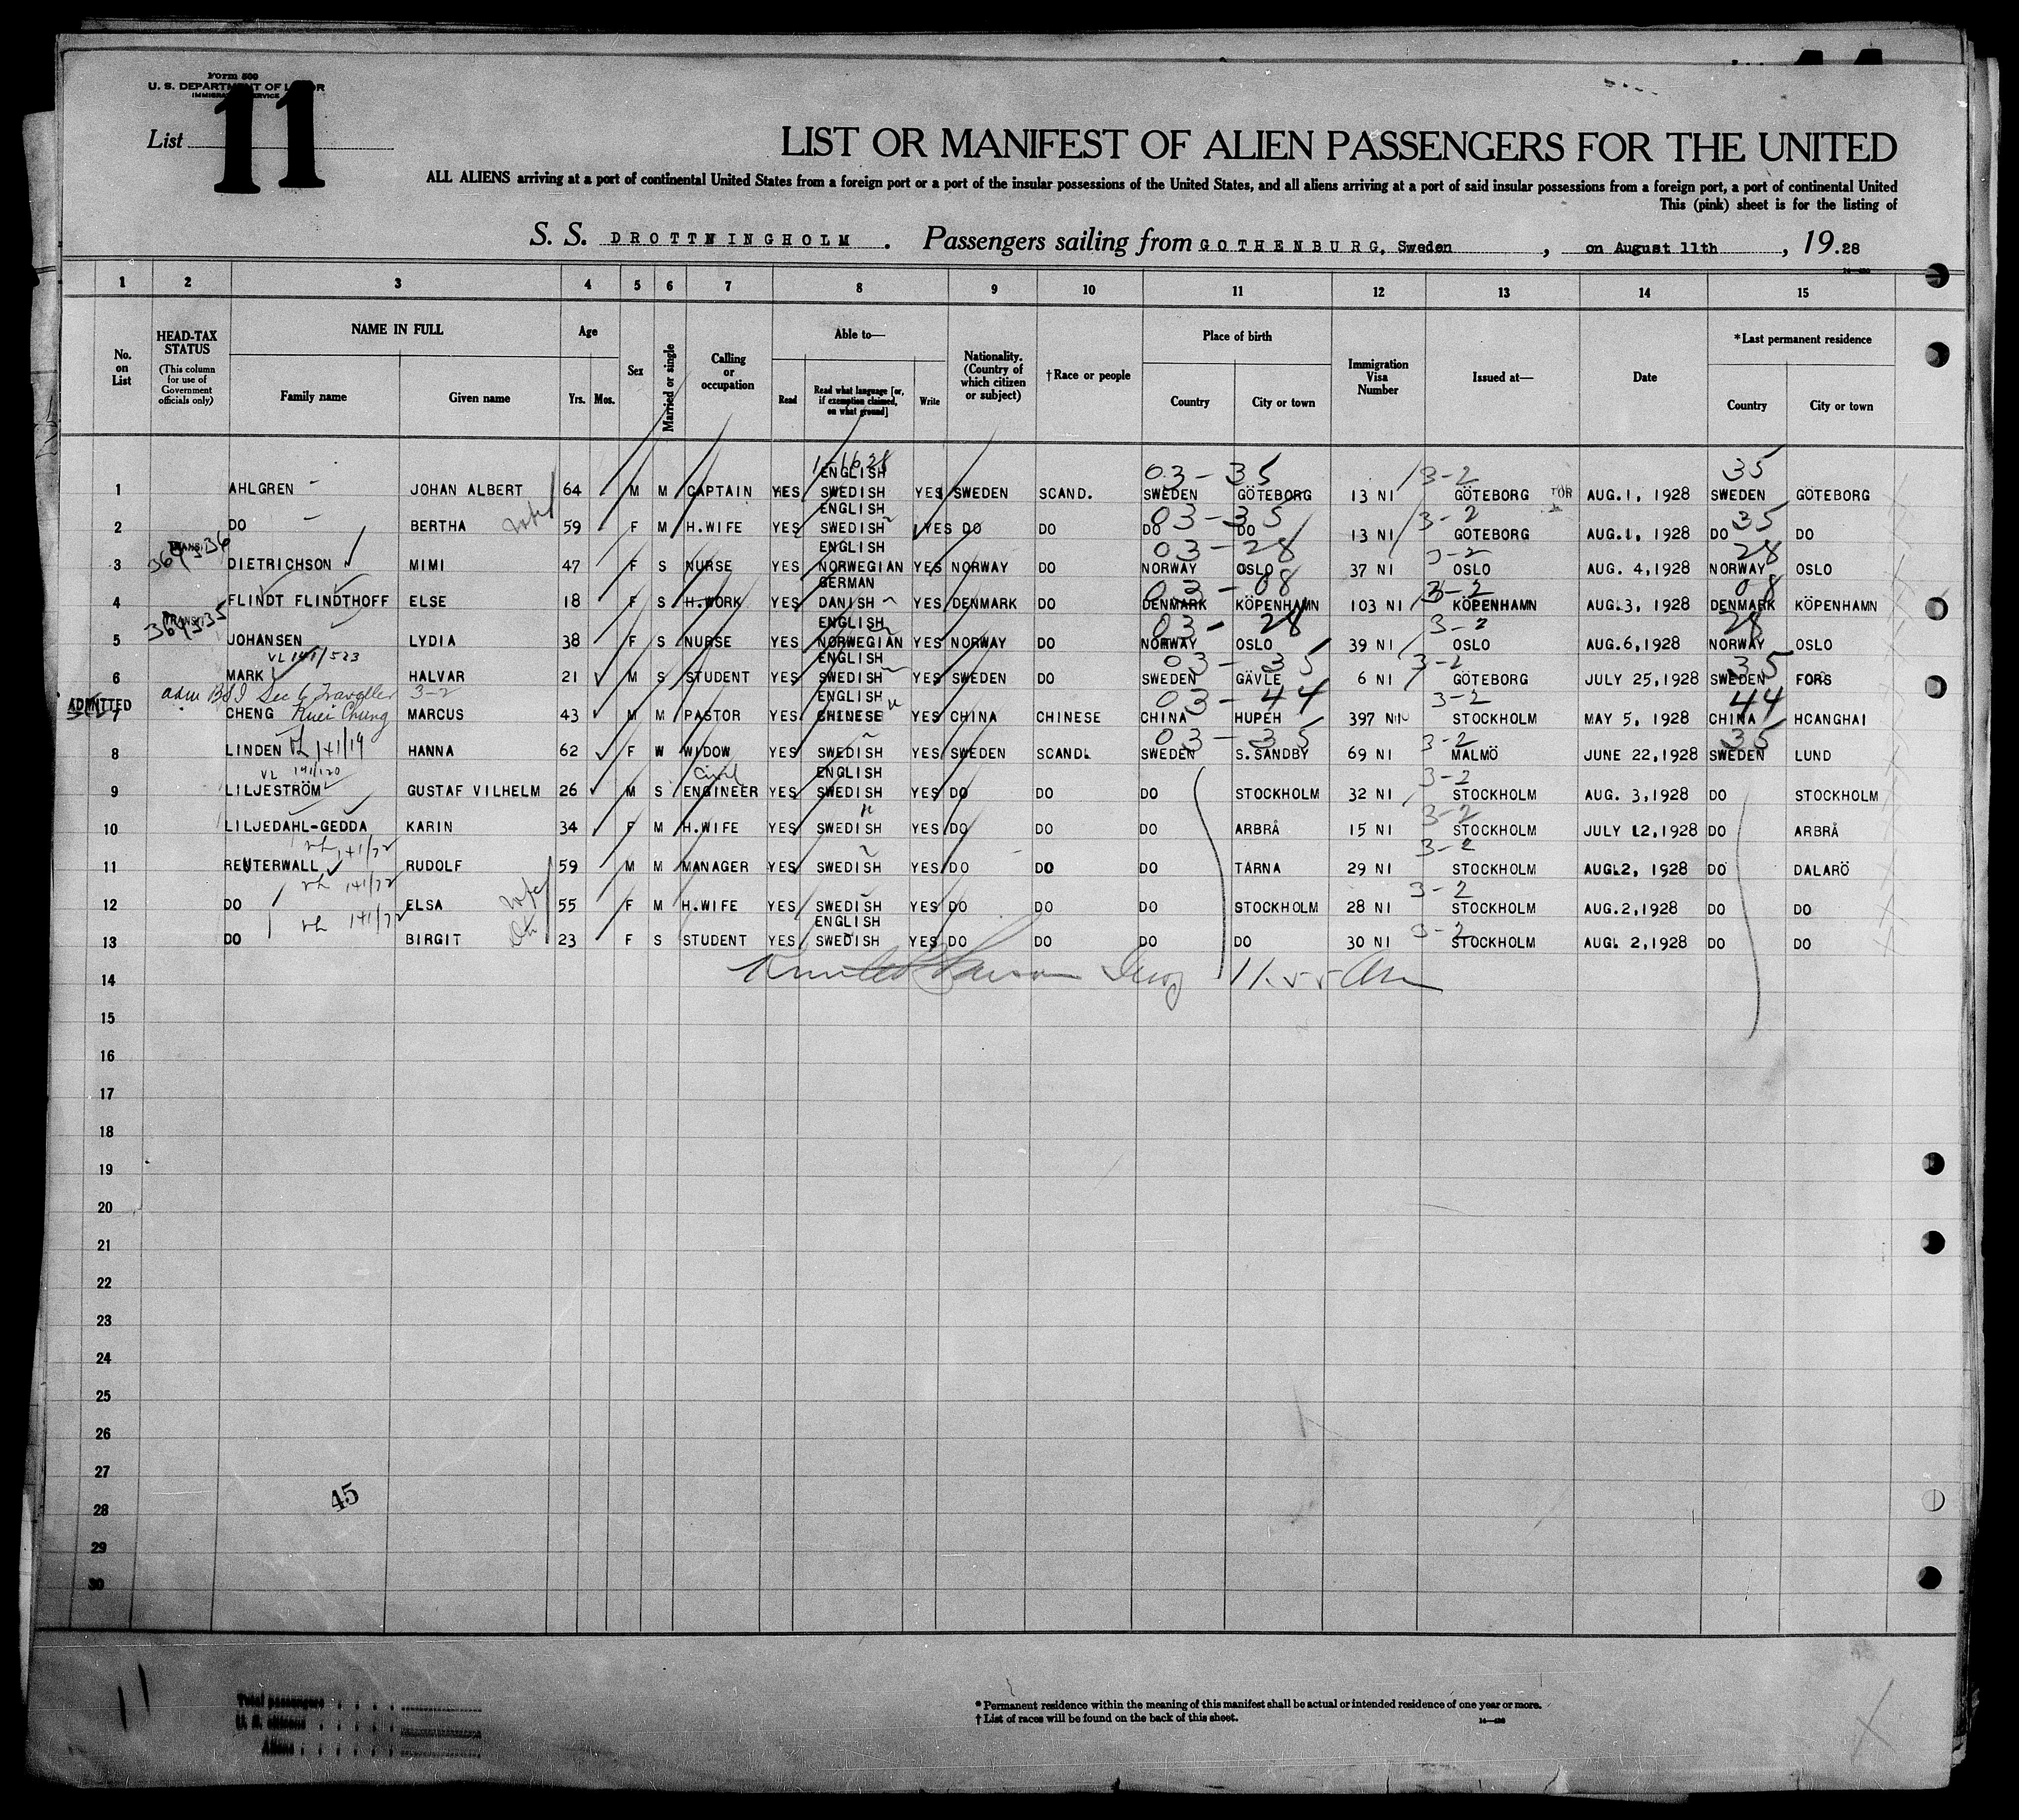 Form 500
U. S. DEPARTMENT OF LABOR
IMMIGRATION SERVICE
List 11
LIST OR MANIFEST OF ALIEN PASSENGERS FOR THE UNITED
ALL ALIENS arriving at a port of continental United States from a foreign port or a port of the insular possessions of the United States, and all aliens arriving at a port of said insular possessions from a foreign port, a port of continental United
This (pink) sheet is for the listing of
S. S. DROTTNINGHOLM . Passengers sailing from GOTHENBURG, Sweden , on August 11th , 19.28
1 2 3 4 5 6 7 8 9 10 11 12 13 14 15
No. on List
HEAD-TAX STATUS
(This column for use of Government officials only)
NAME IN FULL
Family name Given name
Age
Yrs. Mos.
Sex
Married or single
Calling or occupation
Able to—
Read Read what language [or, if exemption claimed, on what ground] Write
Nationality. (Country of which citizen or subject)
†Race or people
Place of birth
Country City or town
Immigration Visa Number
Issued at—
Date
*Last permanent residence
Country City or town
1-1628
ENGLISH 03-35 3-2 35
1 AHLGREN JOHAN ALBERT 64 M M CAPTAIN YES SWEDISH YES SWEDEN SCAND. SWEDEN GÖTEBORG 13 NI GÖTEBORG AUG.1, 1928 SWEDEN GÖTEBORG
ENGLISH 03-35 3-2 35
2 DO BERTHA wife 59 F M H.WIFE YES SWEDISH YES DO DO DO DO 13 NI GÖTEBORG AUG.1, 1928 DO DO
TRANSIT ENGLISH 03-28 3-2 28
3 DIETRICHSON MIMI 47 F S NURSE YES NORWEGIAN YES NORWAY DO NORWAY OSLO 37 NI OSLO AUG. 4,1928 NORWAY OSLO
GERMAN 03-08 3-2 08
4 FLINDT FLINDTHOFF ELSE 18 F S H.WORK YES DANISH YES DENMARK DO DENMARK KÖPENHAMN 103 NI KÖPENHAMN AUG.3, 1928 DENMARK KÖPENHAMN
TRANSIT ENGLISH 03-28 3-2 28
5 JOHANSEN LYDIA 38 F S NURSE YES NORWEGIAN YES NORWAY DO NORWAY OSLO 39 NI OSLO AUG.6,1928 NORWAY OSLO
VL 141/523 ENGLISH 03-35 3-2 35
6 MARK HALVAR 21 M S STUDENT YES SWEDISH YES SWEDEN DO SWEDEN GÄVLE 6 NI GÖTEBORG JULY 25,1928 SWEDEN FORS
adm BSI Sec 6 Traveller 3-2 ENGLISH 03-44 3-2 44
ADMITTED
7 CHENG Kuei Chung MARCUS 43 M M PASTOR YES CHINESE YES CHINA CHINESE CHINA HUPEH 397 NI STOCKHOLM MAY 5, 1928 CHINA HCANGHAI
03-35 3-2 35
8 LINDEN VL 141/19 HANNA 62 F W WIDOW YES SWEDISH YES SWEDEN SCAND. SWEDEN S.SANDBY 69 NI MALMÖ JUNE 22,1928 SWEDEN LUND
VL 141/120 Civil ENGLISH 3-2
9 LILJESTRÖM GUSTAF VILHELM 26 M S ENGINEER YES SWEDISH YES DO DO DO STOCKHOLM 32 NI STOCKHOLM AUG. 3,1928 DO STOCKHOLM
3-2
10 LILJEDAHL-GEDDA KARIN 34 F M H.WIFE YES SWEDISH YES DO DO DO ARBRÅ 15 NI STOCKHOLM JULY 12,1928 DO ARBRÅ
VL 141/72 3-2
11 REUTERWALL RUDOLF 59 M M MANAGER YES SWEDISH YES DO DO DO TÄRNA 29 NI STOCKHOLM AUG.2, 1928 DO DALARÖ
VL 141/72 3-2
12 DO ELSA wife 55 F M H.WIFE YES SWEDISH YES DO DO DO STOCKHOLM 28 NI STOCKHOLM AUG.2,1928 DO DO
VL 141/72 ENGLISH 3-2
13 DO BIRGIT 23 F S STUDENT YES SWEDISH YES DO DO DO DO 30 NI STOCKHOLM AUG. 2,1928 DO DO
14 11.55 Am
15
16
17
18
19
20
21
22
23
24
25
26
27
28 45
29
30
11
Total passengers
U. S. citizens
Aliens
* Permanent residence within the meaning of this manifest shall be actual or intended residence of one year or more.
† List of races will be found on the back of this sheet.